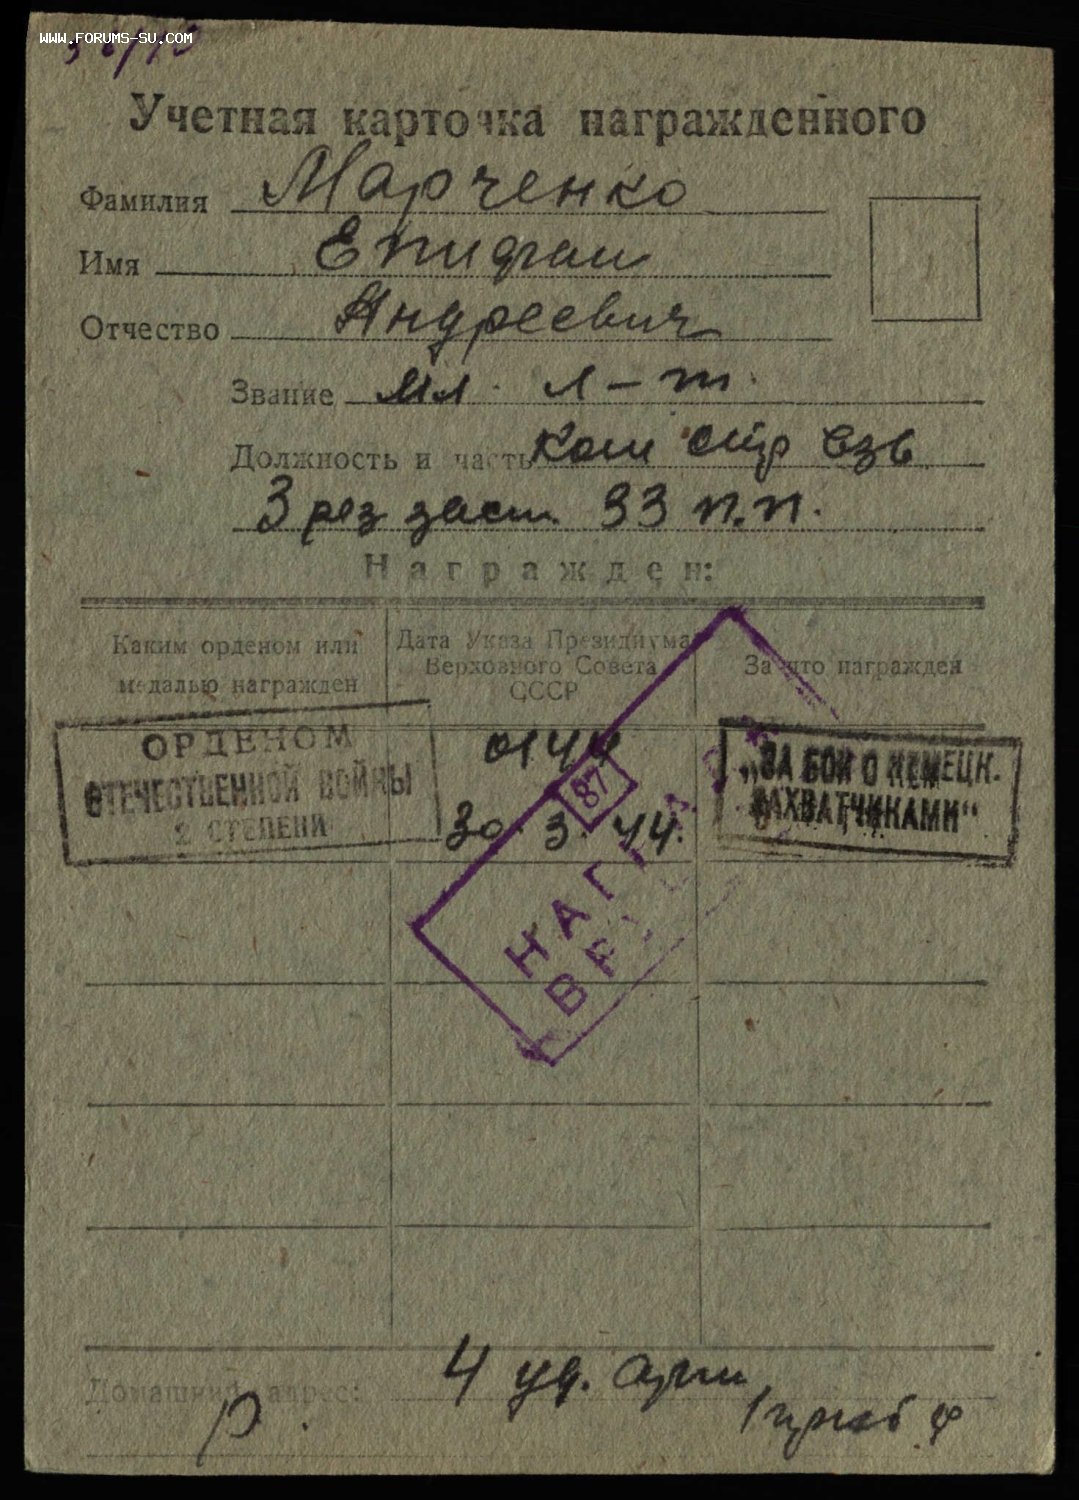 WWW.FORUMS-SU.COM
Учетная карточка награжденного
Фамилия Марченко
Имя Епифан
Отчество Андреевич
Звание Мл. л-т.
Должность и часть Ком стр взв
3 рез заст 33 п.п.
Награжден:
Каким орденом или медалью награжден
Дата Указа Президиума Верховного Совета СССР
За что награжден
ОРДЕНОМ
ОТЕЧЕСТВЕННОЙ ВОЙНЫ
2 СТЕПЕНИ
0144
30.3.44.
„ЗА БОИ С НЕМЕЦК.
ЗАХВАТЧИКАМИ“
87
Домашний адрес: 4 уд. арм
1 приб ф
р.